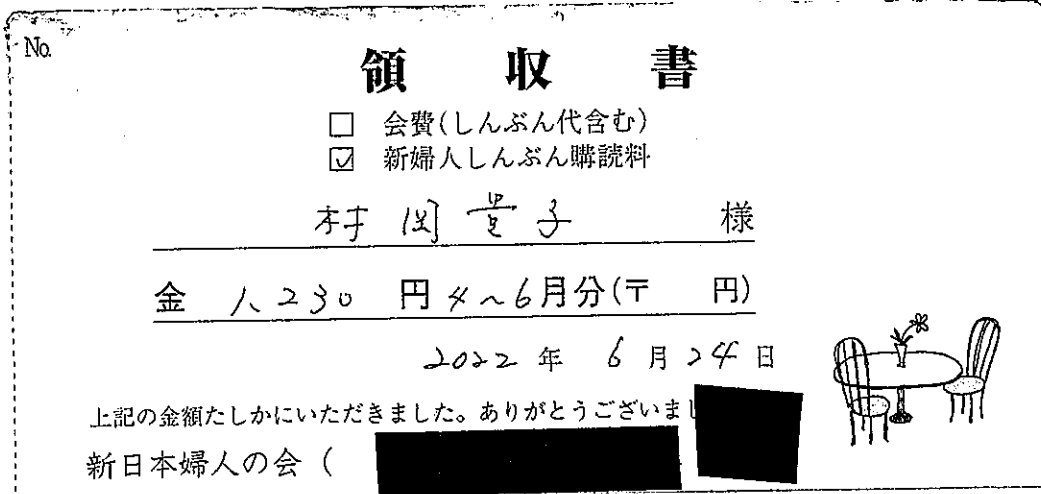 No.
領 収 書
□ 会費(しんぶん代含む)
☑ 新婦人しんぶん購読料
村岡貴子 様
金 1,230 円 4~6月分(〒 円)
2022 年 6 月 24 日
上記の金額たしかにいただきました。ありがとうございまし
新日本婦人の会 (